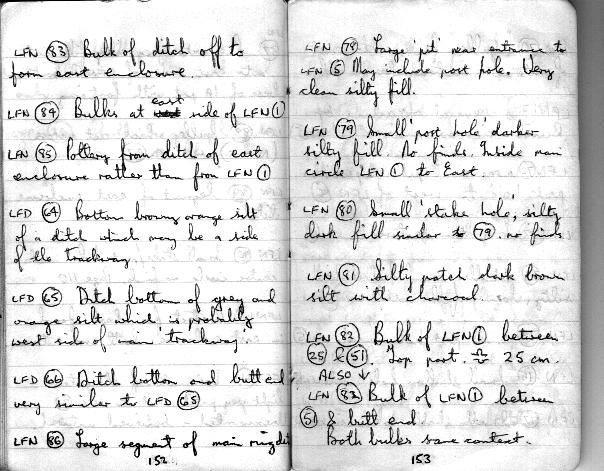 LFN (83) Bulk of ditch off to
form east enclosure.
LFN (84) Bulks at east side of LFN (1)
LFN (85) Pottery from ditch of east
enclosure rather than from LFN (1)
LFD (64) Bottom browny orange silt
of a ditch which may be a side
of the trackway
LFD (65) Ditch bottom of grey and
orange silt which is probably
west side of main 'trackway'
LFD (66) Ditch bottom and butt end
very similar to LFD (65)
LFN (86) Large segment of main ring
152
LFN (78) Large 'pit' near entrance to
LFN (5) May include post hole. Very
clean silty fill.
LFN (79) Small 'post hole' darker
silty fill. No finds. Inside main
circle LFN (1) to East.
LFN (80) Small 'stake hole', silty
dark fill similar to (79). no finds
LFN (81) Silty patch dark brown
silt with charcoal.
LFN (82) Bulk of LFN (1) between
(25) & (51) Top part. 25 cm.
ALSO ↓
LFN (83) Bulk of LFN (1) between
(51) & butt end.
Both bulks same context.
153